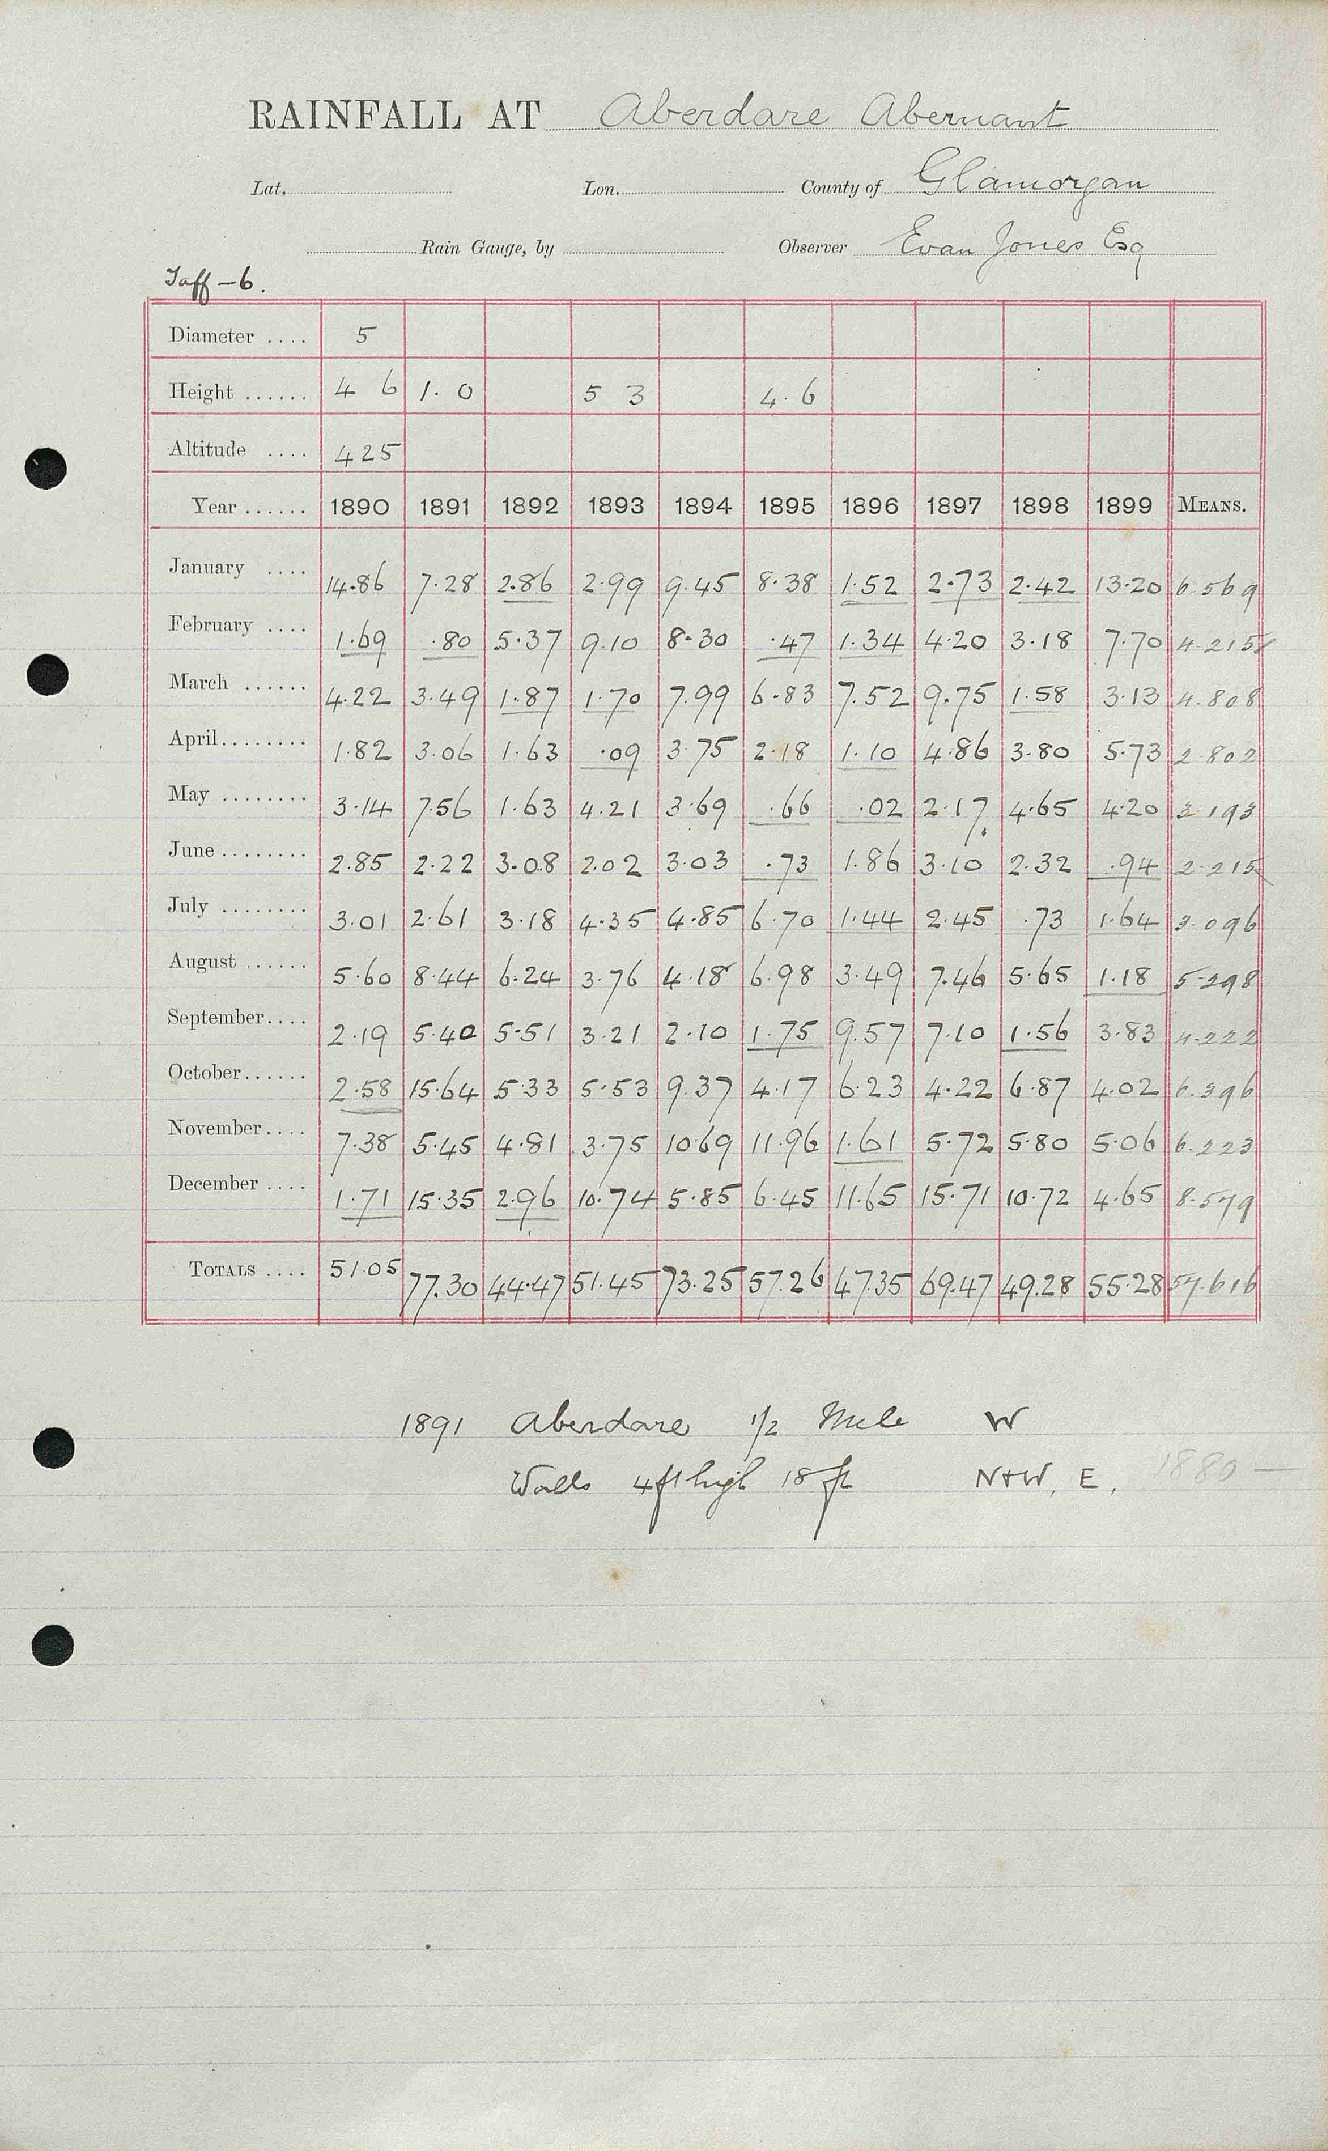 RAINFALL AT Aberdare Abernant
Lat. Lon. County of Glamorgan
Rain Gauge, by Observer Evan Jones Esq
Taff-6.
Diameter .... 5
Height ...... 4 6 1. 0 5 3 4. 6
Altitude .... 425
Year ...... 1890 1891 1892 1893 1894 1895 1896 1897 1898 1899 MEANS.
January .... 14.86 7.28 2.86 2.99 9.45 8.38 1.52 2.73 2.42 13.20 6.569
February .... 1.69 .80 5.37 9.10 8.30 .47 1.34 4.20 3.18 7.70 4.215
March ...... 4.22 3.49 1.87 1.70 7.99 6.83 7.52 9.75 1.58 3.13 4.808
April........ 1.82 3.06 1.63 .09 3.75 2.18 1.10 4.86 3.80 5.73 2.802
May ........ 3.14 7.56 1.63 4.21 3.69 .66 .02 2.17 4.65 4.20 3.193
June ........ 2.85 2.22 3.08 2.02 3.03 .73 1.86 3.10 2.32 .94 2.215
July ........ 3.01 2.61 3.18 4.35 4.85 6.70 1.44 2.45 .73 1.64 3.096
August ...... 5.60 8.44 6.24 3.76 4.18 6.98 3.49 7.46 5.65 1.18 5.298
September.... 2.19 5.40 5.51 3.21 2.10 1.75 9.57 7.10 1.56 3.83 4.222
October...... 2.58 15.64 5.33 5.53 9.37 4.17 6.23 4.22 6.87 4.02 6.396
November.... 7.38 5.45 4.81 3.75 10.69 11.96 1.61 5.72 5.80 5.06 6.223
December .... 1.71 15.35 2.96 10.74 5.85 6.45 11.65 15.71 10.72 4.65 8.579
TOTALS .... 51.05 77.30 44.47 51.45 73.25 57.26 47.35 69.47 49.28 55.28 57.616
1891 Aberdare 1/2 Mile W
Walls 4ft high 18 ft N+W, E, 1880 —